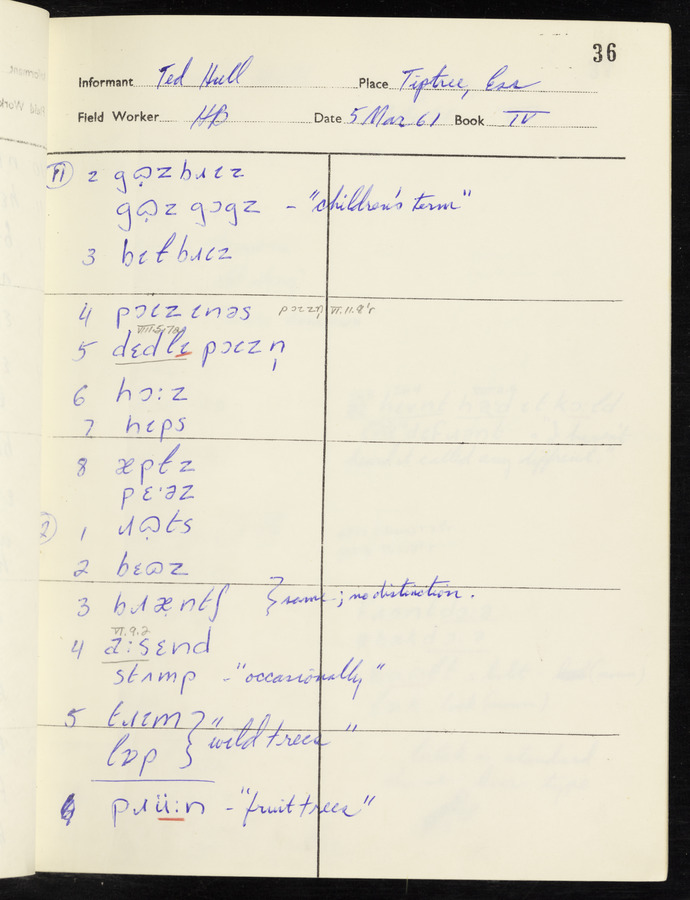 36
Informant Ted Hull Place Tiptree, Ess
Field Worker HB Date 5 Mar 61 Book IV
11 2 gɷ̣zbɹɩz
gɷ̣z gɔgz – "children's term"
3 bɩɫbɹɩz
4 pɔɪzɪnəs pɔɪzn̩ VI.11.8'r
5 dɛdlɪ pɔɪzn̩
6 hɔ:z
7 hɪps
8 æpɫz
pɛ·əz
2 1 ɹɷ̣ts
2 bɛɷz
3 bɹæ̣ntʃ } same; no distinction.
VI.9.2
4 a:sɛnd
stʌmp – "occasionally"
5 tɹɪm } "wild trees"
lɒp
pɹüi:n – "fruit trees"